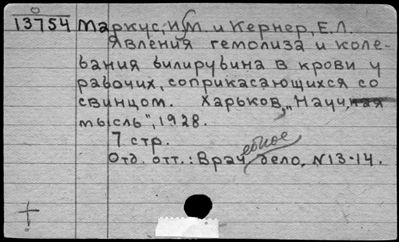 13754 Маркус, И.М. и Кернер, Е.Л.
Явления гемолиза и коле-
бания билирубина в крови у
рабочих, соприкасающихся со
свинцом. Харьков, „Научная
мысль", 1928.
7 стр.
Отд. отт.: Врачебное дело, N13-14.